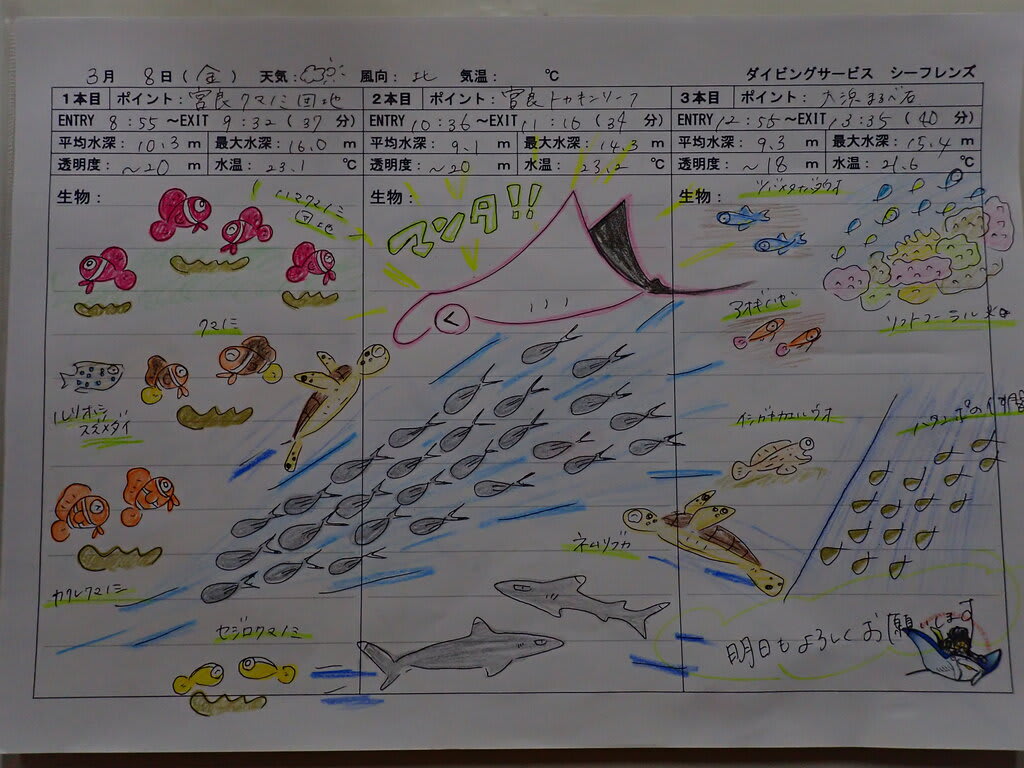 3月 8日(金) 天気: 風向: 北 気温: ℃
ダイビングサービス シーフレンズ
1本目 ポイント: 宮良クマノミ団地
ENTRY 8:55 ~EXIT 9:32 (37 分)
平均水深: 10.3 m 最大水深: 16.0 m
透明度: ~20 m 水温: 23.1 ℃
生物:
ハマクマノミ
団地
クマノミ
ルリオビ
スズメダイ
カクレクマノミ
セジロクマノミ
2本目 ポイント: 宮良トカキンリーフ
ENTRY 10:36 ~EXIT 11:10 (34 分)
平均水深: 9.1 m 最大水深: 14.3 m
透明度: ~20 m 水温: 23.2 ℃
生物:
マンタ!!
ネムリブカ
3本目 ポイント: 大浜まるべ石
ENTRY 12:55 ~EXIT 13:35 (40 分)
平均水深: 9.3 m 最大水深: 15.4 m
透明度: ~18 m 水温: 21.6 ℃
生物:
ソフトコーラル
イシガキカエルウオ
ハタンポの
明日もよろしくお願いします